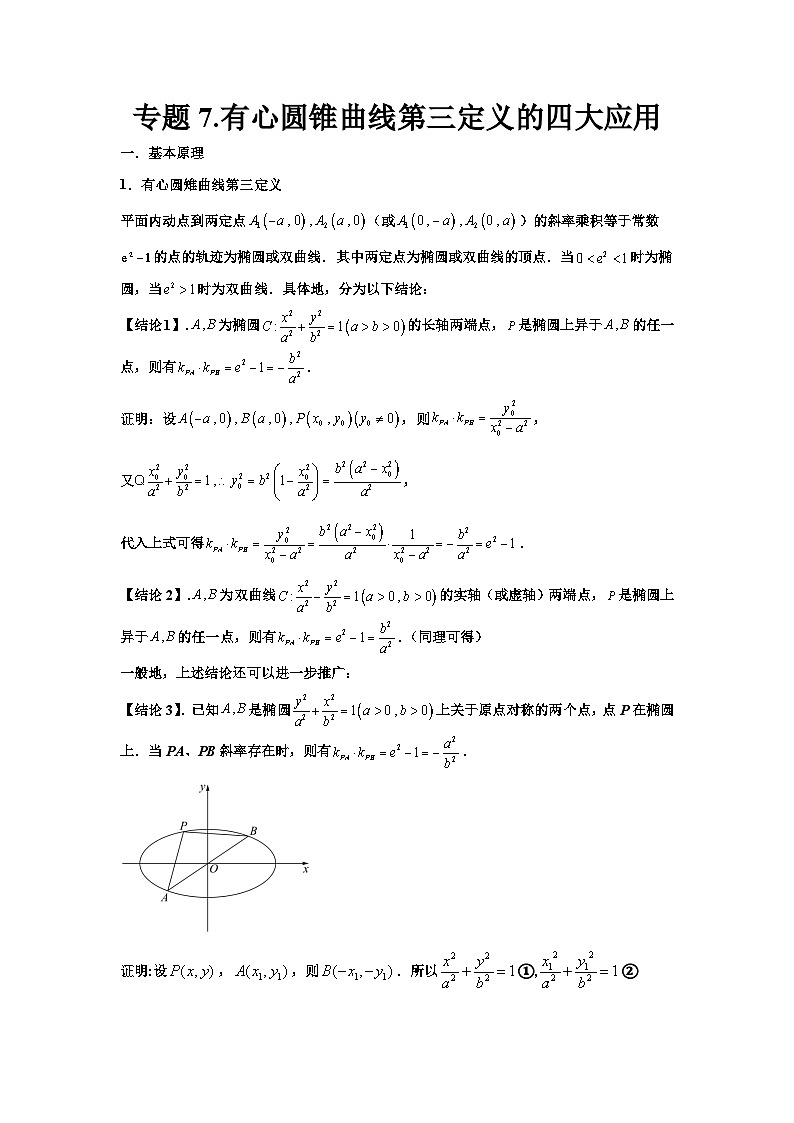 专题 7.有心圆锥曲线第三定义的四大应用
一．基本原理
1．有心圆雉曲线第三定义
平面内动点到两定点 A₁(−a,0),A₂(a,0)（或A₁(0,−a),A₂(0,a)）的斜率乘积等于常数
e²−1的点的轨迹为椭圆或双曲线．其中两定点为椭圆或双曲线的顶点．当0<e²<1时为椭
圆，当e²>1时为双曲线．具体地，分为以下结论：
【结论1】.A,B为椭圆C:x²/a²+y²/b²=1(a>b>0)的长轴两端点，P是椭圆上异于A,B的任一
点，则有k_PA·k_PB=e²−1=−b²/a²．
证明：设A(−a,0),B(a,0),P(x₀,y₀)(y₀≠0)，则k_PA·k_PB=y₀²/(x₀²−a²)，
又Q x₀²/a²+y₀²/b²=1,∴ y₀²=b²(1−x₀²/a²)=b²(a²−x₀²)/a²，
代入上式可得k_PA·k_PB=y₀²/(x₀²−a²)=b²(a²−x₀²)/a²·1/(x₀²−a²)=−b²/a²=e²−1．
【结论 2】.A,B为双曲线C:x²/a²−y²/b²=1(a>0,b>0)的实轴（或虚轴）两端点，P是椭圆上
异于A,B的任一点，则有k_PA·k_PB=e²−1=b²/a²．（同理可得）
一般地，上述结论还可以进一步推广：
【结论 3】. 已知A,B是椭圆y²/a²+x²/b²=1(a>0,b>0)上关于原点对称的两个点，点 P 在椭圆
上．当 PA、PB 斜率存在时，则有k_PA·k_PB=e²−1=−a²/b²．
y
P
B
O
x
A
证明:设P(x,y)，A(x₁,y₁)，则B(−x₁,−y₁)．所以x²/a²+y²/b²=1①,x₁²/a²+y₁²/b²=1②